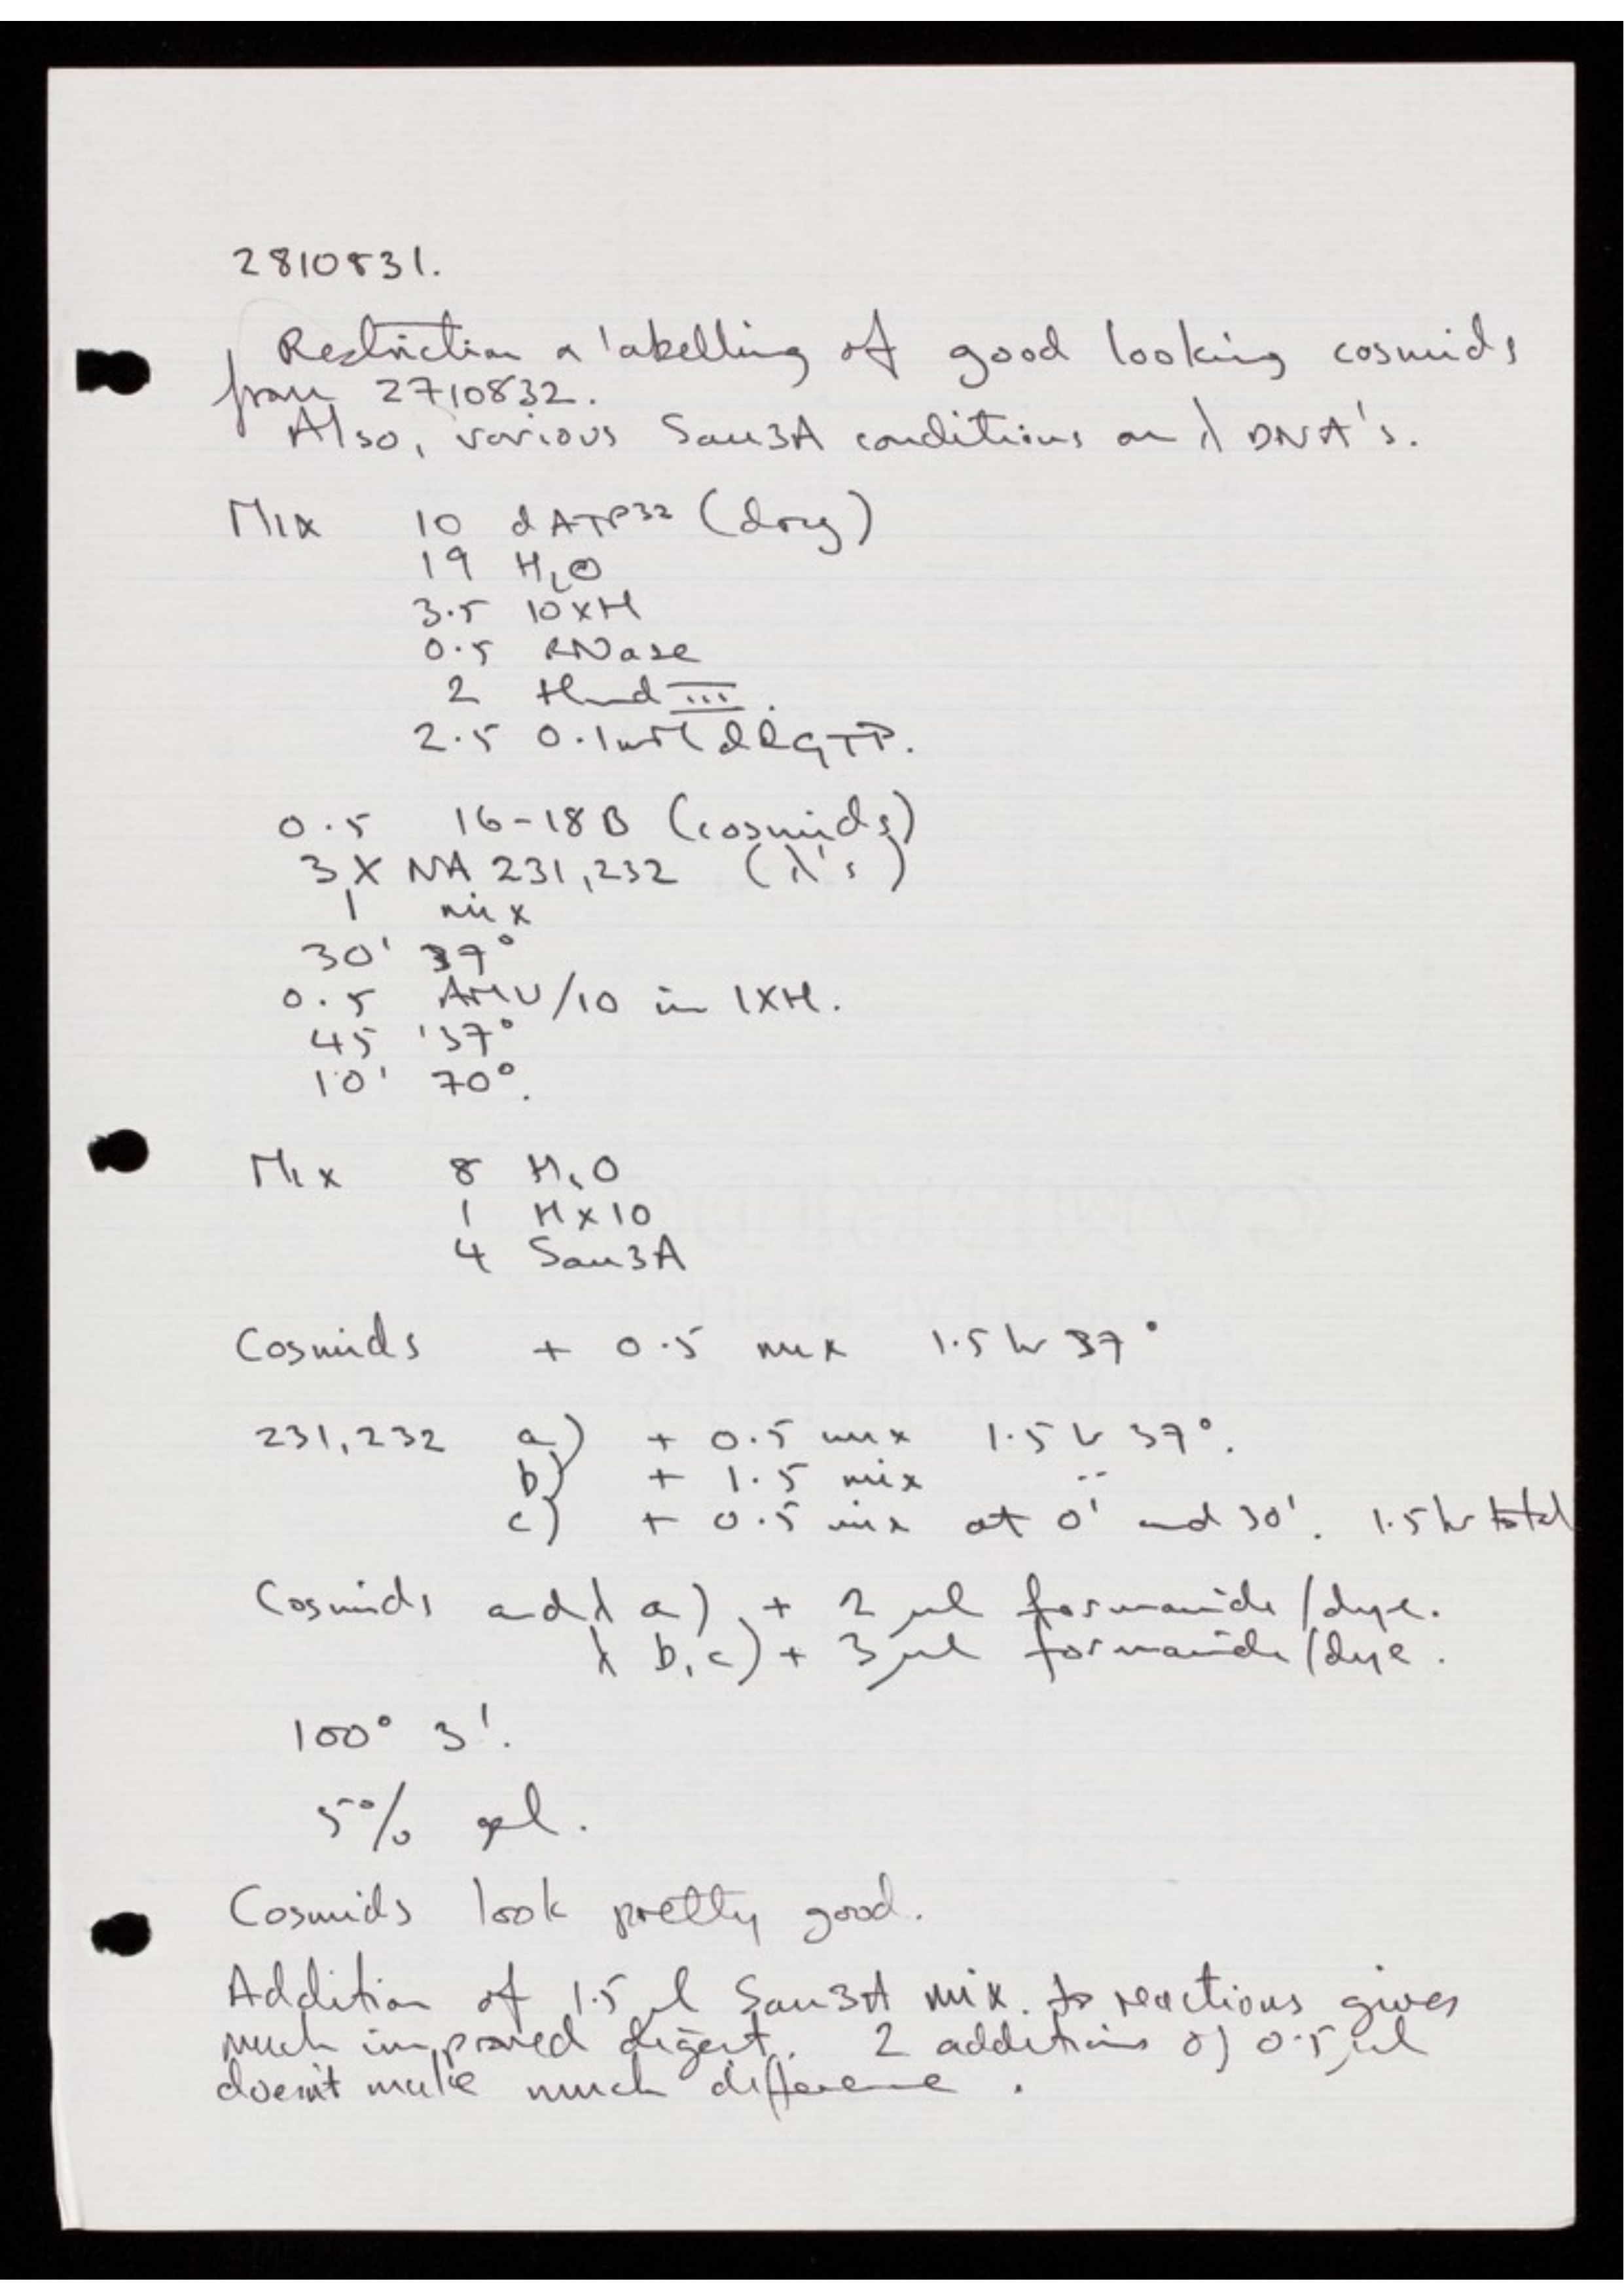 2810831.
Restriction & labelling of good looking cosmids
from 2710832.
Also, various Sau3A conditions on λ DNA's.
Mix 10 dATP32 (dry)
19 H2O
3.5 10xH
0.5 RNase
2 Hind III.
2.5 0.1mM ddGTP.
0.5 16-18B (cosmids)
3 X NA 231,232 (λ's)
1 mix
30' 37°
0.5 AMV/10 in 1XH.
45 '37°
10' 70°.
Mix 8 H2O
1 Hx10
4 Sau3A
Cosmids + 0.5 mix 1.5 hr 37°
231,232 a) + 0.5 mix 1.5 hr 37°.
b) + 1.5 mix "
c) + 0.5 mix at 0' and 30'. 1.5 hr total
Cosmids and λ a) + 2 μl formamide/dye.
λ b,c) + 3 μl formamide/dye.
100° 3'.
5% gel.
Cosmids look pretty good.
Addition of 1.5 μl Sau3A mix. to reactions gives
much improved digest. 2 additions of 0.5 μl
doesn't make much difference.